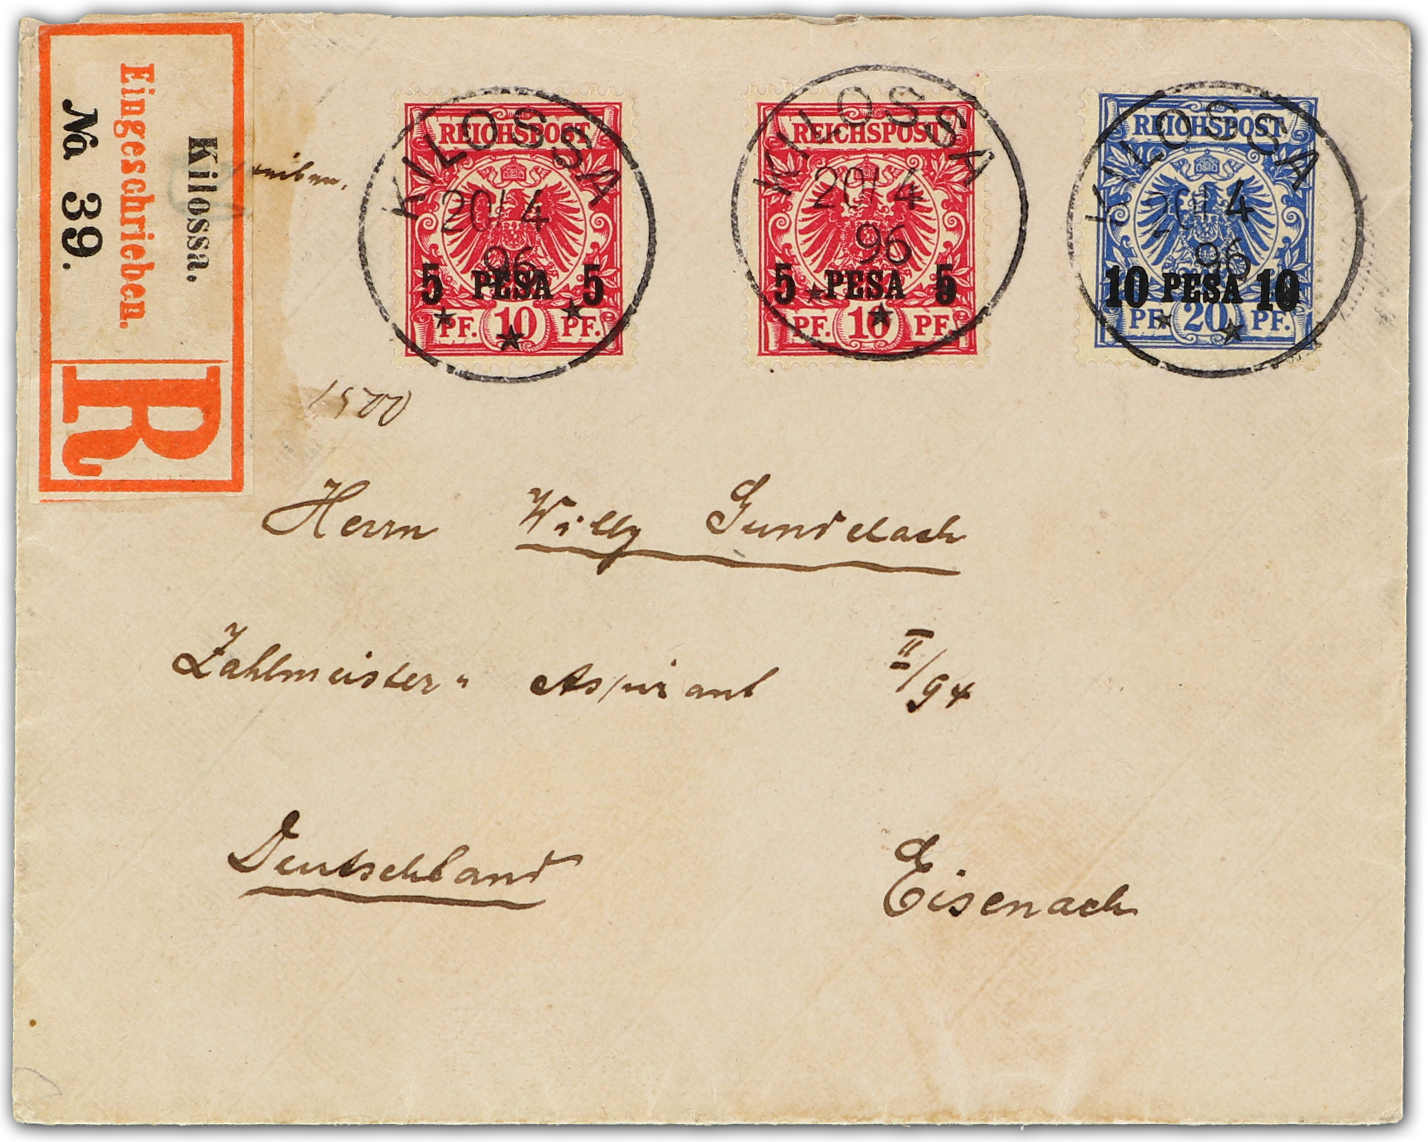 Kilossa.
Eingeschrieben.
No 39.
R
REICHSPOST
5 PESA 5
PF. 10 PF.
KILOSSA
20/4
96
REICHSPOST
5 PESA 5
PF. 10 PF.
KILOSSA
20/4
96
REICHSPOST
10 PESA 10
PF. 20 PF.
KILOSSA
20/4
96
1500
Herrn Willy Gundelach
Zahlmeister" Aspirant II/94
Deutschland Eisenach